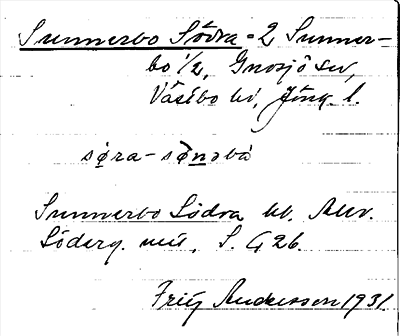 Sunnerbo Södra = 2 Sunner-
bo 1/2, Gnosjö sn,
Västbo hd, Jönk. l.
søra-sønəbo
Sunnerbo Södra hd. Akv.
Söderg. mus. S. 426.
Fritz Andersson 1931.